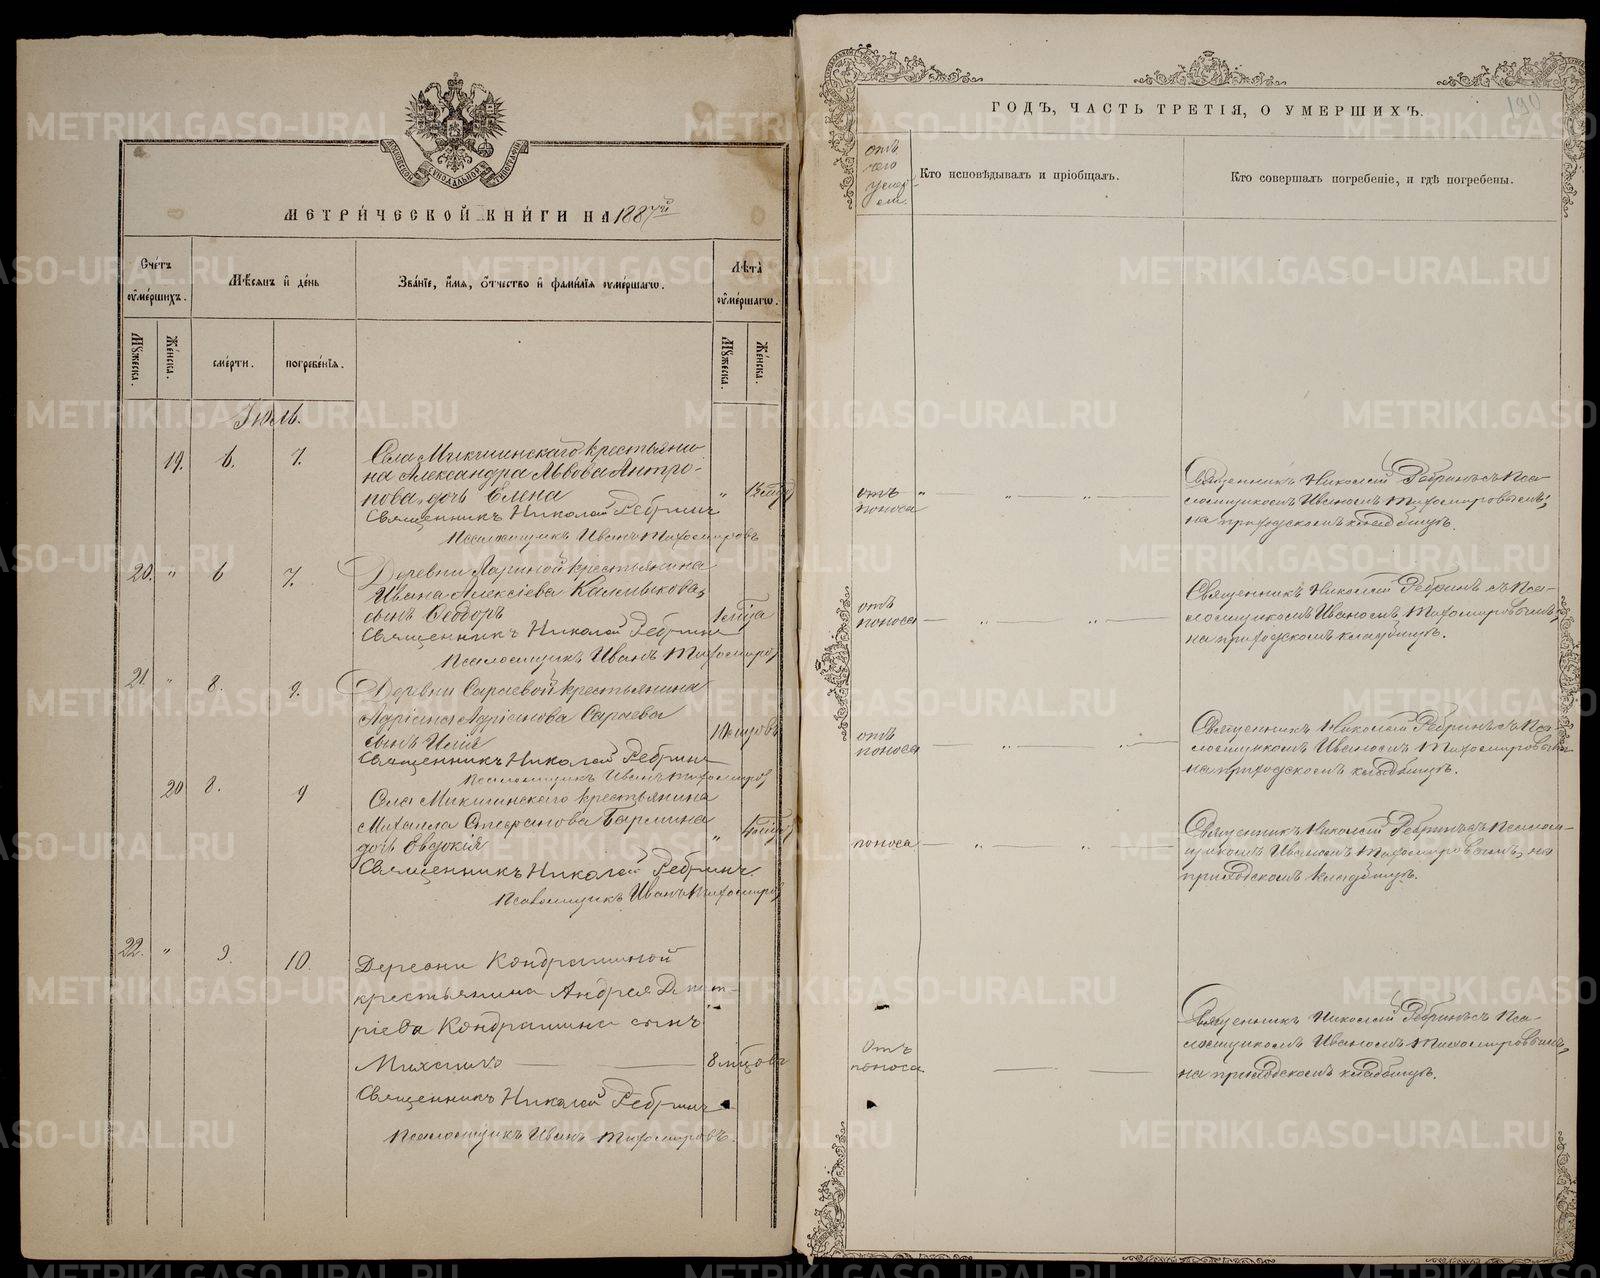 МЕТРИЧЕСКОЙ КНИГИ НА 1887й
Счетъ умершихъ.
Мѣсяцъ и день
Званіе, имя, отчество и фамилія умершаго.
Лѣта умершаго.
Мужеска.
Женска.
смерти.
погребенія.
Мужеска.
Женска.
Іюль.
19. 6. 7. Села Микшинскаго крестьяни-
на Александра Львова Антро-
пова, дочь Елена "
Священникъ Николай Ребринъ
Псаломщикъ Иванъ Тихомировъ
20. " 6 7. Деревни Лариной крестьянина
Ивана Алексіева Калмыкова,
сынъ Ѳеодоръ
Священникъ Николай Ребринъ
Псаломщикъ Иванъ Тихомиров
21 " 8. 9. Деревни Сараевой крестьянина
Адріана Адріанова Сараева
сынъ Илія
Священникъ Николай Ребринъ
Псаломщикъ Иванъ Тихомиров
20 8. 9 Села Микшинскаго крестьянина
Михаила Стефанова Бармина
дочь Евдокія "
Священникъ Николай Ребринъ
Псаломщикъ Иванъ Тихомиров
22. " 9. 10. Деревни Кондрашиной
крестьянина Андрея Димит-
ріева Кондрашина сынъ
Михаилъ 8 мѣсцовъ
Священникъ Николай Ребринъ
Псаломщикъ Иванъ Тихомировъ.
190
ГОДЪ, ЧАСТЬ ТРЕТІЯ, О УМЕРШИХЪ.
отъ
чего
умер-
ет.
Кто исповѣдывалъ и пріобщалъ.
Кто совершалъ погребеніе, и гдѣ погребены.
отъ
поноса
" " "
Священникъ Николай Ребринъ съ Пса-
ломщикомъ Иваномъ Тихомировымъ,
на приходскомъ кладбищѣ.
отъ
поноса
" "
Священникъ Николай Ребринъ съ Пса-
ломщикомъ Иваномъ Тихомировымъ,
на приходскомъ кладбищѣ.
отъ
поноса
" "
Священникъ Николай Ребринъ съ Пса-
ломщикомъ Иваномъ Тихомировымъ
на приходскомъ кладбищѣ.
поноса
" "
Священникъ Николай Ребринъ съ Псалом-
щикомъ Иваномъ Тихомировымъ, на
приходскомъ кладбищѣ.
Отъ
поноса
Священникъ Николай Ребринъ съ Пса-
ломщикомъ Иваномъ Тихомировымъ,
на приходскомъ кладбищѣ.
METRIKI.GASO-URAL.RU